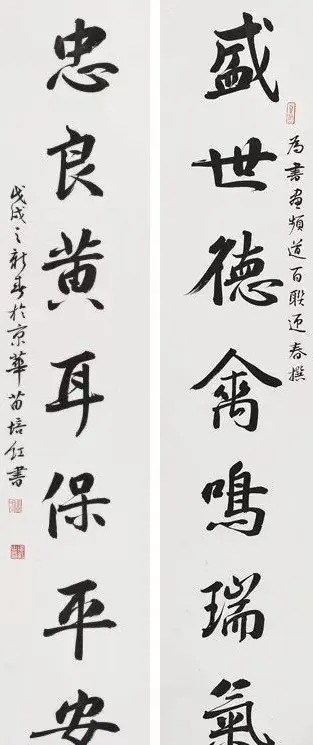 盛世德禽鳴瑞氣
為書画頻道百聯迎春撰
忠良黄耳保平安
戊戌之新春於京華苗培红書